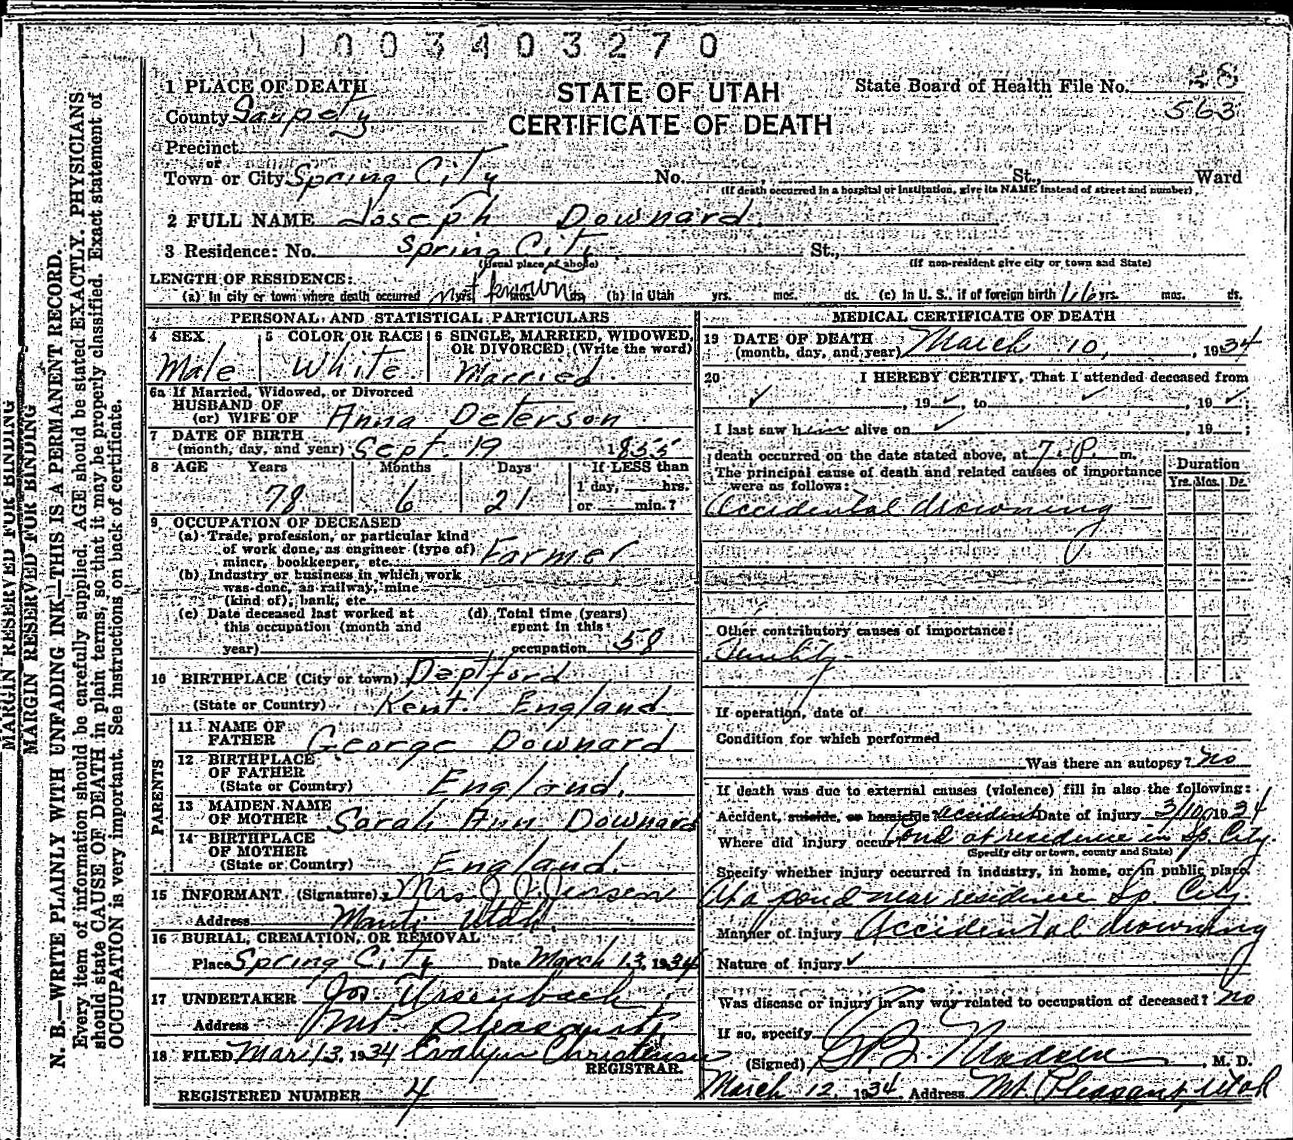 1003403270
1 PLACE OF DEATH
County Sanpete
Precinct
or
Town or City Spring City No. St., Ward
(If death occurred in a hospital or institution, give its NAME instead of street and number)
STATE OF UTAH
CERTIFICATE OF DEATH
State Board of Health File No. 28
563
2 FULL NAME Joseph Downard
3 Residence: No. Spring City St.,
(Usual place of abode) (If non-resident give city or town and State)
LENGTH OF RESIDENCE:
(a) In city or town where death occurred not known yrs. mos. ds. (b) in Utah yrs. mos. ds. (c) In U. S., if of foreign birth 66 yrs. mos. ds.
PERSONAL AND STATISTICAL PARTICULARS
4 SEX Male
5 COLOR OR RACE White
6 SINGLE, MARRIED, WIDOWED, OR DIVORCED (Write the word) Married
6a If Married, Widowed, or Divorced
HUSBAND OF
(or) WIFE OF Anna Peterson
7 DATE OF BIRTH
(month, day, and year) Sept. 19 1855
8 AGE Years Months Days If LESS than
78 6 21 1 day, hrs.
or min.?
9 OCCUPATION OF DECEASED
(a) Trade, profession, or particular kind
of work done, as engineer (type of)
miner, bookkeeper, etc. Farmer
(b) Industry or business in which work
was done, as railway, mine
(kind of), bank, etc
(c) Date deceased last worked at
this occupation (month and
year)
(d) Total time (years)
spent in this
occupation 58
10 BIRTHPLACE (City or town) Deptford
(State or Country) Kent. England
PARENTS
11 NAME OF
FATHER George Downard
12 BIRTHPLACE
OF FATHER
(State or Country) England.
13 MAIDEN NAME
OF MOTHER Sarah Ann Downard
14 BIRTHPLACE
OF MOTHER
(State or Country) England.
15 INFORMANT (Signature) Mrs J Jensen
Address Manti Utah.
16 BURIAL, CREMATION, OR REMOVAL
Place Spring City Date March 13, 1934
17 UNDERTAKER Jos Ursenbach
Address Mt. Pleasant
18 FILED Mar 13, 1934 Evalyn Christensen
REGISTRAR.
REGISTERED NUMBER 4
MEDICAL CERTIFICATE OF DEATH
19 DATE OF DEATH
(month, day, and year) March 10, 1934
20 I HEREBY CERTIFY, That I attended deceased from
, 19 , to , 19
I last saw him alive on , 19 ;
death occurred on the date stated above, at 7. P. m.
The principal cause of death and related causes of importance
were as follows:
Duration
Yrs. Mos. Ds.
Accidental drowning
Other contributory causes of importance:
If operation, date of
Condition for which performed
Was there an autopsy? No
If death was due to external causes (violence) fill in also the following:
Accident, suicide, or homicide? accident Date of injury 3/10 1934
Where did injury occur? Pond at residence in Sp. City
(Specify city or town, county and State)
Specify whether injury occurred in industry, in home, or in public place.
At a pond near residence Sp. City
Manner of injury Accidental drowning
Nature of injury
Was disease or injury in any way related to occupation of deceased? No
If so, specify
(Signed) Madsen, M. D.
March 12, 1934 Address Mt Pleasant, Utah
MARGIN RESERVED FOR BINDING
MARGIN RESERVED FOR BINDING
N. B.—WRITE PLAINLY WITH UNFADING INK—THIS IS A PERMANENT RECORD.
Every item of information should be carefully supplied. AGE should be stated EXACTLY. PHYSICIANS
should state CAUSE OF DEATH in plain terms, so that it may be properly classified. Exact statement of
OCCUPATION is very important. See instructions on back of certificate.